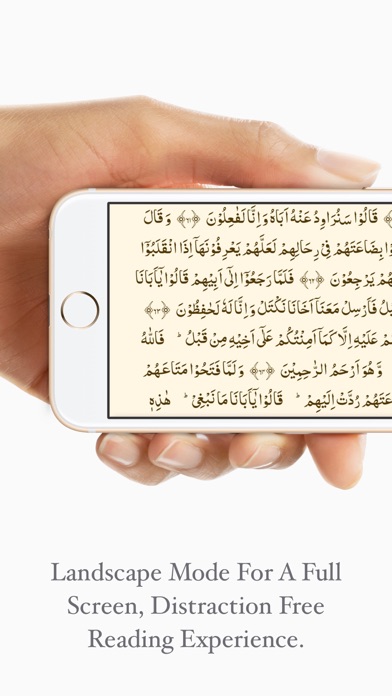 قَالُوْا سَنُرَاوِدُ عَنْهُ اَبَاهُ وَاِنَّا لَفٰعِلُوْنَ ﴿۶۱﴾ وَ قَالَ
وْا بِضَاعَتَهُمْ فِيْ رِحَالِهِمْ لَعَلَّهُمْ يَعْرِفُوْنَهَاۤ اِذَا انْقَلَبُوْۤا
هُمْ يَرْجِعُوْنَ ﴿۶۲﴾ فَلَمَّا رَجَعُوْۤا اِلٰۤى اَبِيْهِمْ قَالُوْا يٰۤاَبَانَا
يْلُ فَاَرْسِلْ مَعَنَاۤ اَخَانَا نَكْتَلْ وَ اِنَّا لَهٗ لَحٰفِظُوْنَ ﴿۶۳﴾
مْ عَلَيْهِ اِلَّا كَمَاۤ اَمِنْتُكُمْ عَلٰۤى اَخِيْهِ مِنْ قَبْلُ ؕ فَاللّٰهُ
وَّ هُوَ اَرْحَمُ الرّٰحِمِيْنَ ﴿۶۴﴾ وَ لَمَّا فَتَحُوْا مَتَاعَهُمْ
عَتَهُمْ رُدَّتْ اِلَيْهِمْ ؕ قَالُوْا يٰۤاَبَانَا مَا نَبْغِيْ ؕ هٰذِهٖ
Landscape Mode For A Full
Screen, Distraction Free
Reading Experience.